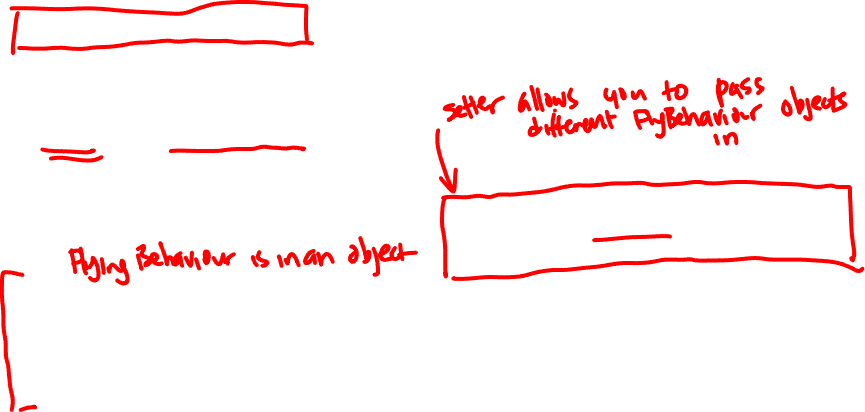 setter allows you to pass
different FlyBehaviour objects
in
Flying Behaviour is in an object